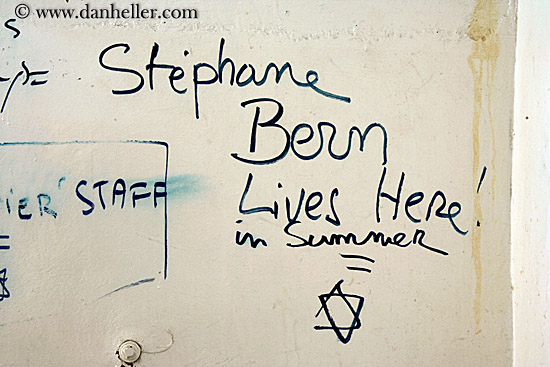 © www.danheller.com
s
Stéphane
Bern
Lives Here!
in Summer
STAFF